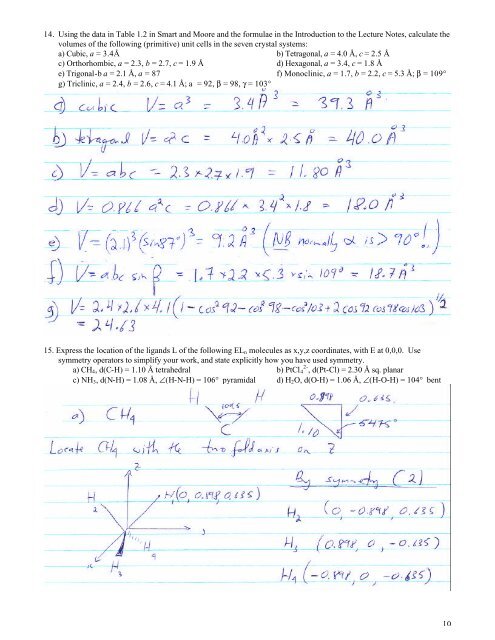 14. Using the data in Table 1.2 in Smart and Moore and the formulae in the Introduction to the Lecture Notes, calculate the
volumes of the following (primitive) unit cells in the seven crystal systems:
a) Cubic, a = 3.4Å b) Tetragonal, a = 4.0 Å, c = 2.5 Å
c) Orthorhombic, a = 2.3, b = 2.7, c = 1.9 Å d) Hexagonal, a = 3.4, c = 1.8 Å
e) Trigonal-b a = 2.1 Å, a = 87 f) Monoclinic, a = 1.7, b = 2.2, c = 5.3 Å; β = 109°
g) Triclinic, a = 2.4, b = 2.6, c = 4.1 Å; a = 92, β = 98, γ = 103°
a) cubic V = a³ = 3.4Å³ = 39.3 Å³
b) tetragonal V = a²c = 4.0Å² × 2.5 Å = 40.0 Å³
c) V = abc = 2.3 × 2.7 × 1.9 = 11.80 Å³
d) V = 0.866 a²c = 0.866 × 3.4² × 1.8 = 18.0 Å³
e) V = (2.1)³ (sin 87°)³ = 9.2 Å³ (NB normally α is > 90°!)
f) V = abc sin β = 1.7 × 2.2 × 5.3 × sin 109° = 18.7 Å³
g) V = 2.4 × 2.6 × 4.1 (1 - cos² 92 - cos² 98 - cos² 103 + 2 cos 92 cos 98 cos 103)^1/2
= 24.63
15. Express the location of the ligands L of the following ELₙ molecules as x,y,z coordinates, with E at 0,0,0. Use
symmetry operators to simplify your work, and state explicitly how you have used symmetry.
a) CH₄, d(C-H) = 1.10 Å tetrahedral b) PtCl₄²⁻, d(Pt-Cl) = 2.30 Å sq. planar
c) NH₃, d(N-H) = 1.08 Å, ∠(H-N-H) = 106° pyramidal d) H₂O, d(O-H) = 1.06 Å, ∠(H-O-H) = 104° bent
H H 0.898 0.635
109.5
a) CH₄ C 1.10 54.75°
Locate CH₄ with the twofold axis on Z
Z By symmetry (2)
H₂ H₁(0, 0.898, 0.635)
H₂ (0, -0.898, 0.635)
y
H₃ (0.898, 0, -0.635)
x H₃ H₄
H₄ (-0.898, 0, -0.635)
10